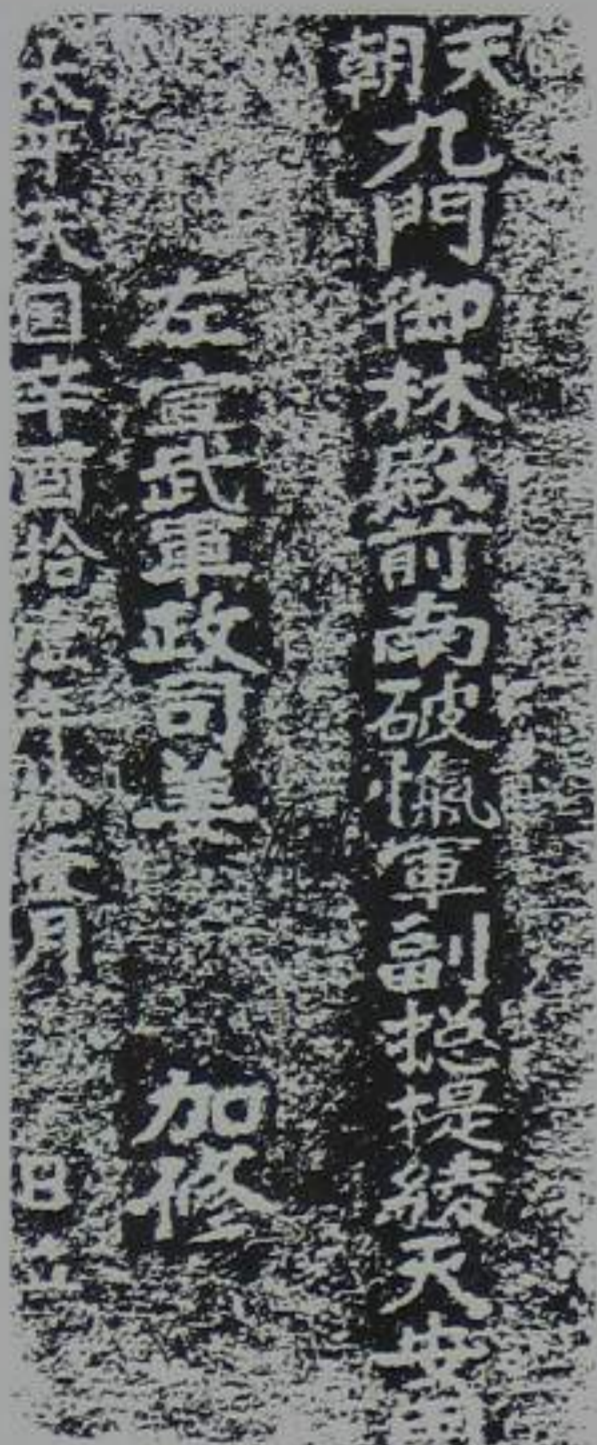 天朝九門御林殿前南破愾軍副捴提綾天安周
左宣武軍政司姜 加修
太平天囯辛酉拾壹年拾壹月 日立